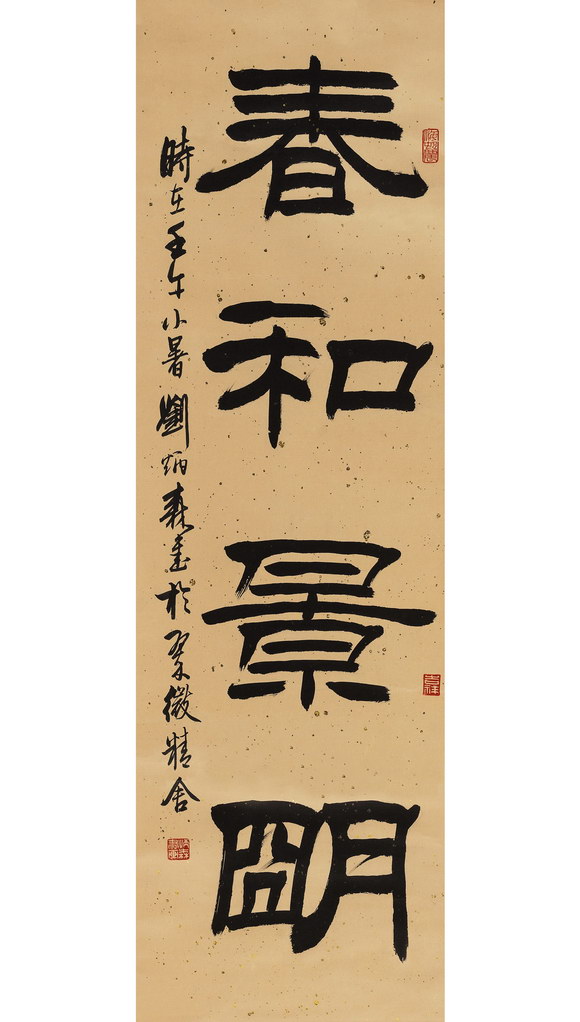 春和景朙
時在壬午小暑劉炳森書於翠微精舍
吉祥